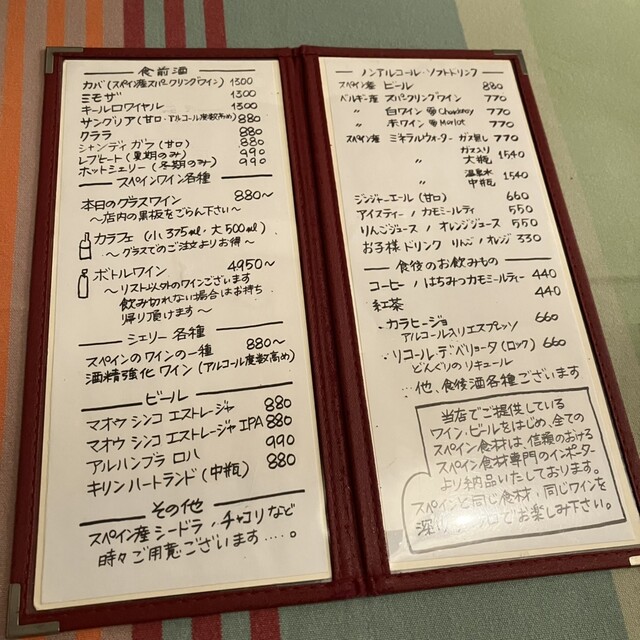 食前酒
カバ(スペイン産スパークリングワイン) 1300
ミモザ 1300
キールロワイヤル 1300
サングリア(甘口・アルコール度数高め) 880
クララ 880
シャンディ ガラ(甘口) 880
レブヒート(夏期のみ) 990
ホットシェリー(冬期のみ) 990
スペインワイン各種
本日のグラスワイン 880〜
〜店内の黒板をごらん下さい〜
カラフェ(小 375ml・大 500ml)
〜グラスでのご注文よりお得〜
ボトルワイン 4950〜
〜リスト以外のワインございます
飲み切れない場合はお持ち
帰り頂けます〜
シェリー 各種
スペインのワインの一種 880〜
酒精強化ワイン(アルコール度数高め)
ビール
マオウ シンコ エストレージャ 880
マオウ シンコ エストレージャ IPA 880
アルハンブラ ロハ 990
キリンハートランド(中瓶) 880
その他
スペイン産シードラ/チャコリなど
時々ご用意ございます....。
ノンアルコール・ソフトドリンク
スペイン産 ビール 880
ベルギー産 スパークリングワイン 770
〃 白ワイン Chardonnay 770
〃 赤ワイン Merlot 770
スペイン産 ミネラルウォーター ガス無し 770
〃 ガス入り 大瓶 1540
〃 温泉水 中瓶 1540
ジンジャーエール(甘口) 660
アイスティー/カモミールティ 550
りんごジュース/オレンジジュース 550
お子様ドリンク りんご/オレンジ 330
食後のお飲みもの
コーヒー/はちみつカモミールティー 440
紅茶 440
・カラヒージョ 660
アルコール入りエスプレッソ
・リコールデベリョータ(ロック) 660
どんぐりのリキュール
...他、食後酒各種ございます
当店でご提供している
ワイン・ビールをはじめ、全ての
スペイン食材は、信頼のおける
スペイン食材専門のインポーター
より納品いたしております。
スペインと同じ食材、同じワインを
でお楽しみ下さい。